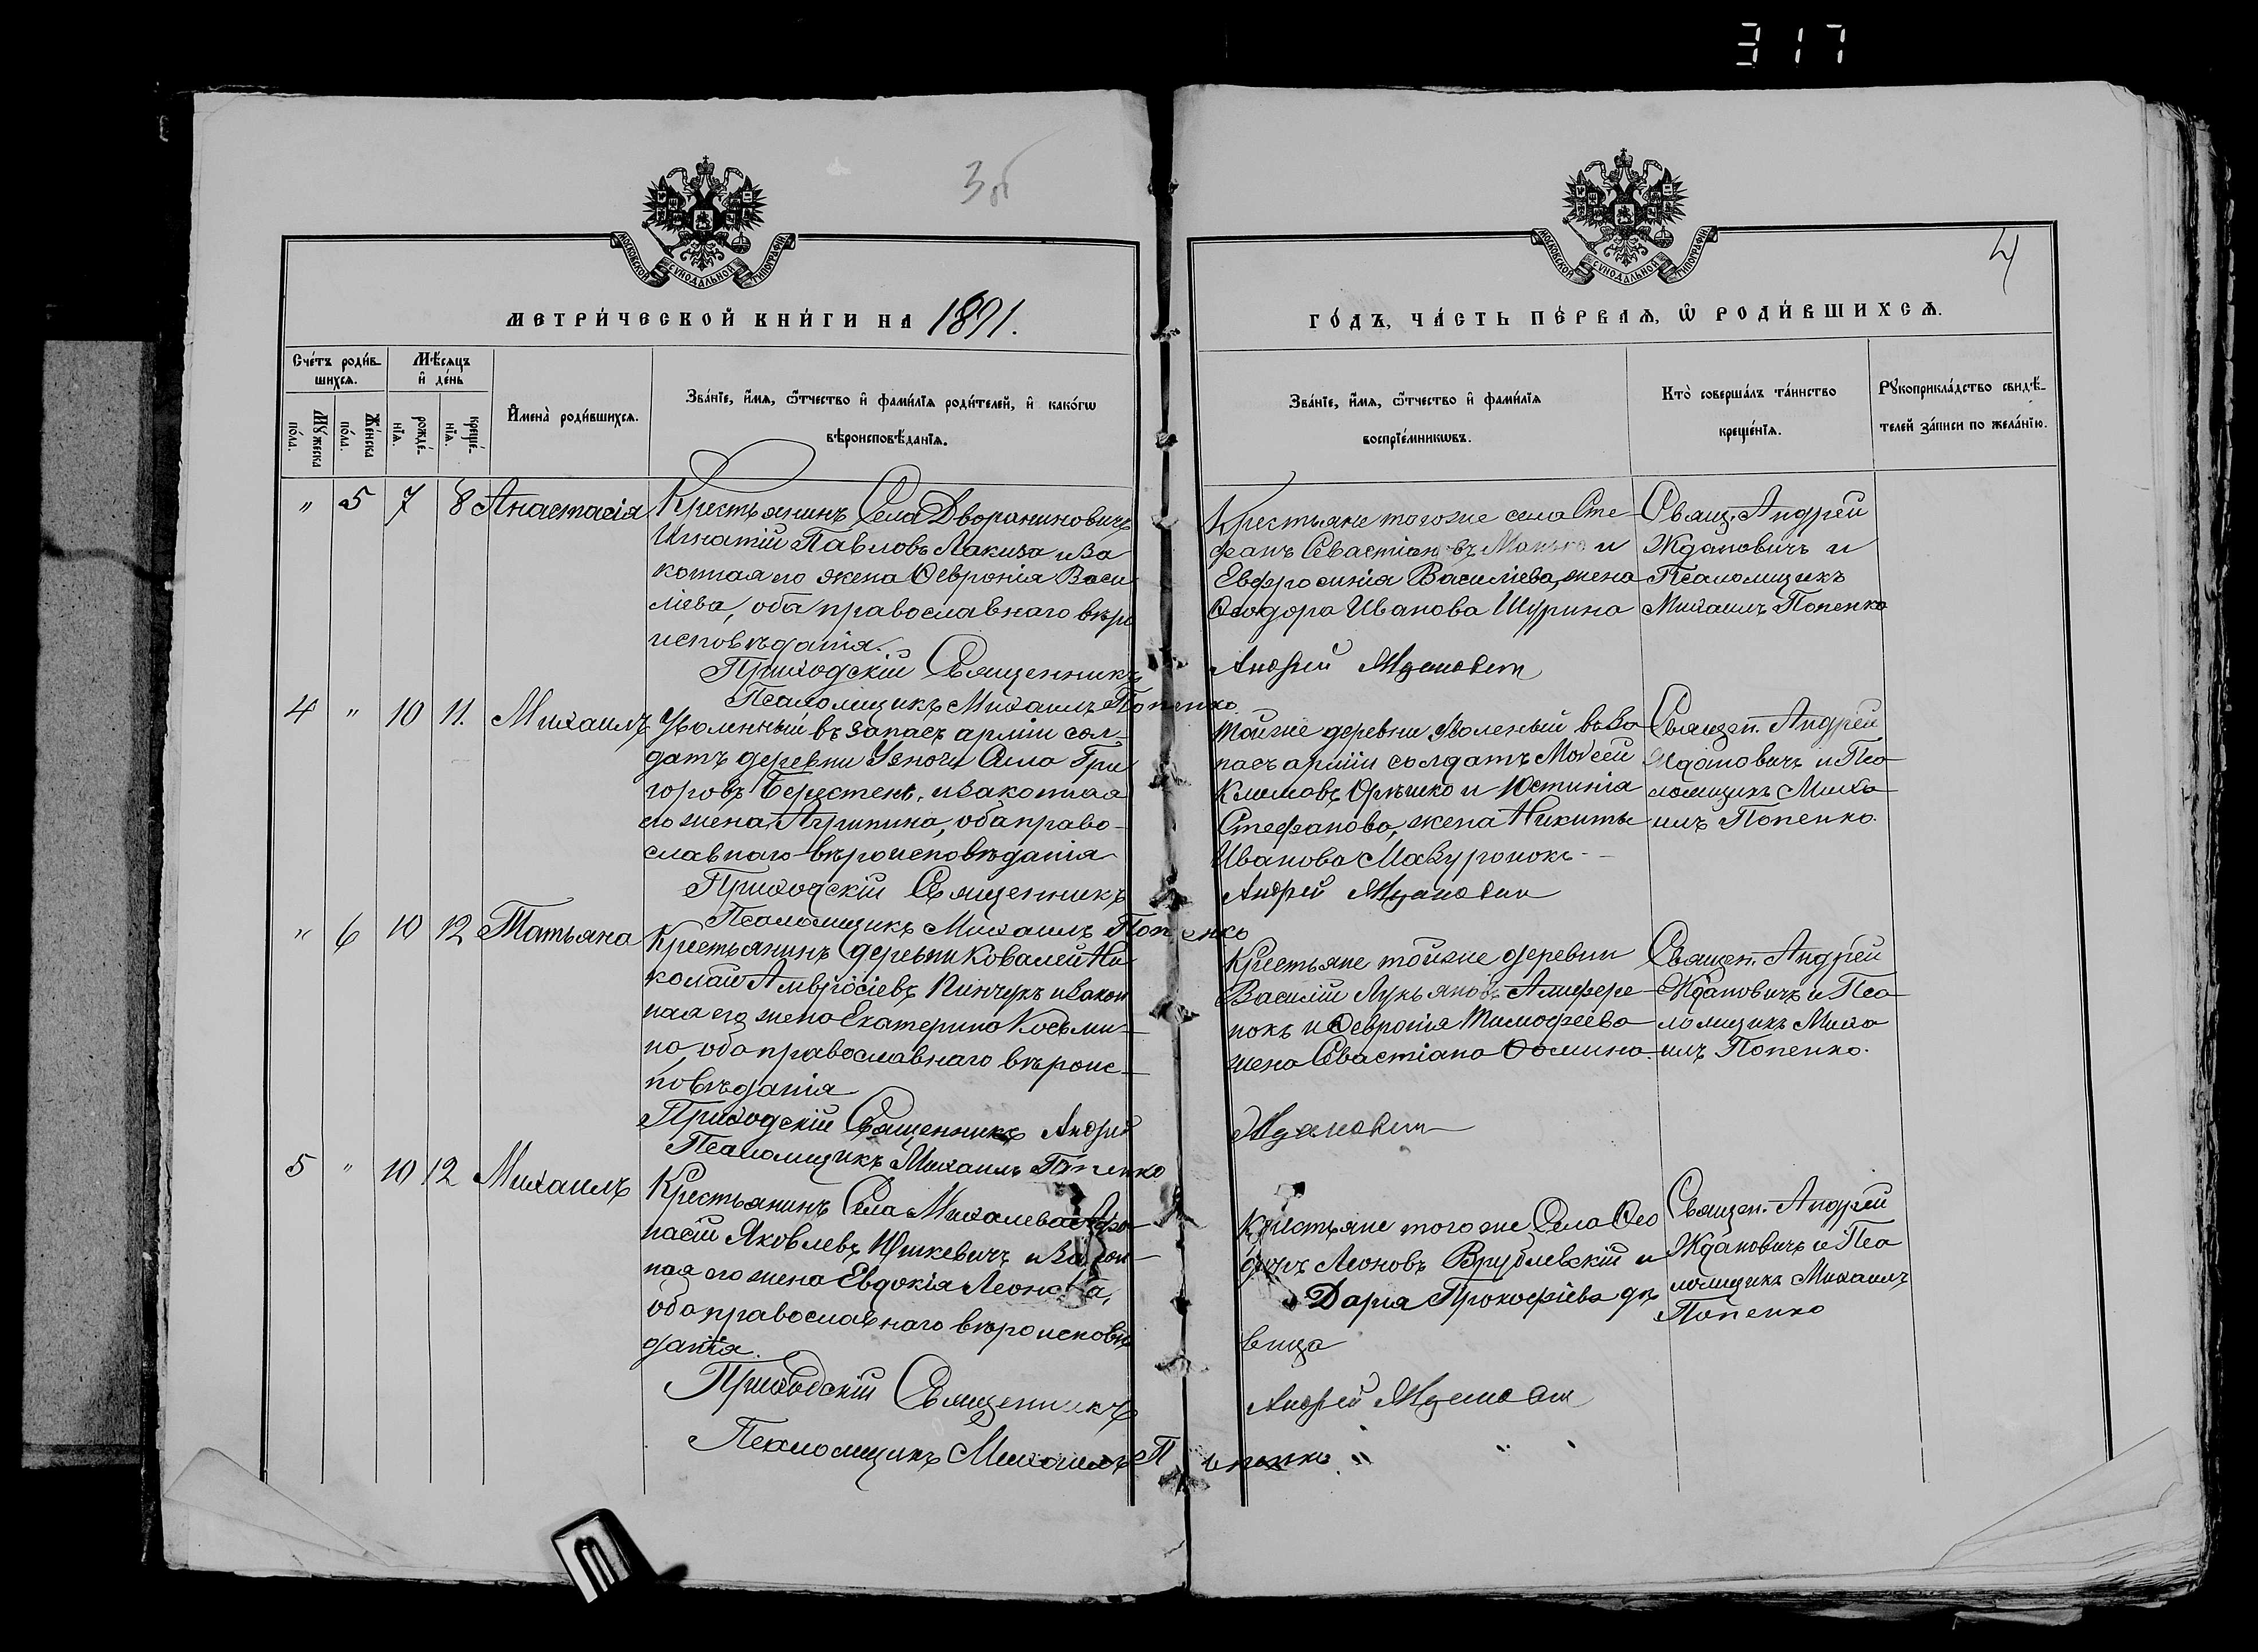 317
3 об
4
МОСКОВСКОЙ СѴНОДАЛЬНОЙ ТИПОГРАФІИ
МОСКОВСКОЙ СѴНОДАЛЬНОЙ ТИПОГРАФІИ
МЕТРИ́ЧЕСКОЙ КНИ́ГИ НА 1891.
ГО́ДЪ, ЧА́СТЬ ПЕ́РВАѦ, Ѡ҆ РОДИ́ВШИХСѦ.
Сче́тъ роди́вшихсѧ.
Мꙋ́жеска по́ла.
Же́нска по́ла.
Мѣ́сѧцъ и҆ де́нь
рожде́нїѧ.
креще́нїѧ.
И҆мена̀ роди́вшихсѧ.
Зва́нїе, и҆́мѧ, ѻ҆́тчество и҆ фами́лїѧ роди́телей, и҆ како́гѡ
вѣроисповѣ́данїѧ.
Зва́нїе, и҆́мѧ, ѻ҆́тчество и҆ фами́лїѧ
воспрїе́мникѡвъ.
Кто̀ соверша́лъ та́инство
креще́нїѧ.
Рꙋкоприкла́дство свидѣ́-
телей за́писи по жела́нїю.
" 5 7 8 Анастасія
Крестьянинъ Села Двораниновичъ
Игнатій Павловъ Лакиза и За
конная его жена Ѳевронія Васи
ліева, оба православнаго вѣро
исповѣданія.
Приходскій Священникъ
Псаломщикъ Михаилъ Попенко
Крестьяне тогоже села Сте
фанъ Севастіановъ и
Евфросинія Василіева, жена
Ѳеодора Иванова Шурина
Андрей Жданович
Свящ. Андрей
Ждановичъ и
Псаломщикъ
Михаилъ Попенко
4 " 10 11. Михаилъ
Уволенный въ запасъ арміи сол-
датъ деревни Узночи Сила Гри
горовъ Берестень, и законная
его жена Агрипина, оба право-
славнаго вѣроисповѣданія
Приходскій Священникъ
Псаломщикъ Михаилъ Попенко
Тойже деревни уволеный въ за
пасъ арміи солдатъ Моѵсей
Климовъ Орѣшко и Юстинія
Стефанова, жена Никиты
Иванова Мазуронокъ
Андрей Жданович
Священ. Андрей
Ждановичъ и Пса
ломщикъ Миха
илъ Попенко.
" 6 10 12 Татьяна
Крестьянинъ деревни Ковалей Ни
колай Амвросіевъ Пинчукъ и закон
ная его жена Екатерина Косьми-
на, оба православнаго вѣроис-
повѣданія
Приходскій Священникъ Андрей
Псаломщикъ Михаилъ Попенко
Крестьяне тойже деревни
Василій Лукьяновъ Алифере
нокъ и Ѳевронія Тимофеева
жена Севастіана Ѳомина.
Жданович
Священ. Андрей
Ждановичъ и Пса
ломщикъ Миха
илъ Попенко.
5 " 10 12 Михаилъ
Крестьянинъ Села Михалева Афа
насій Яковлевъ Юшкевичъ и Закон-
ная его жена Евдокія Леонова,
оба православнаго вѣроисповѣ
данія.
Приходскій Священникъ
Псаломщикъ Михаилъ Попенко
Крестьяне того же Села Ѳео
доръ Леоновъ Врублевскій и
Дарія Прокофіева дѣ
вица
Андрей Жданович
Священ. Андрей
Ждановичъ и Пса
ломщикъ Михаилъ
Попенко